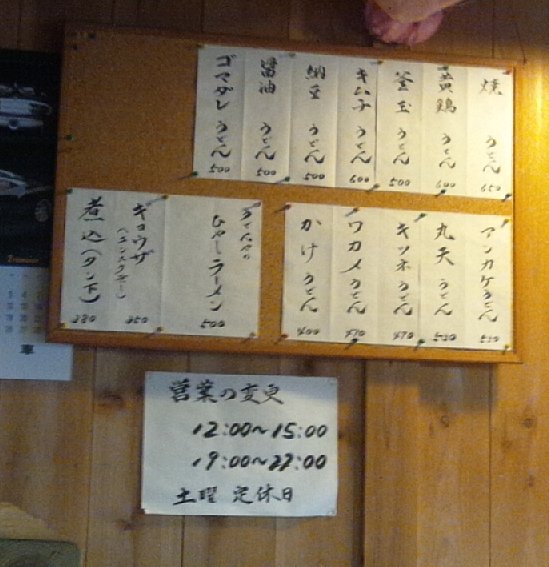 焼うどん 650
黄鶏うどん 600
釜玉うどん 500
キムチうどん 600
納豆うどん 500
醤油うどん 500
ゴマダレうどん 500
アンカケうどん 550
丸天うどん 500
キツネうどん 470
ワカメうどん 470
かけうどん 400
ひやーラーメン 500
キョウザ 350
煮込(タン下) 380
営業の変更
12:00～15:00
19:00～22:00
土曜 定休日